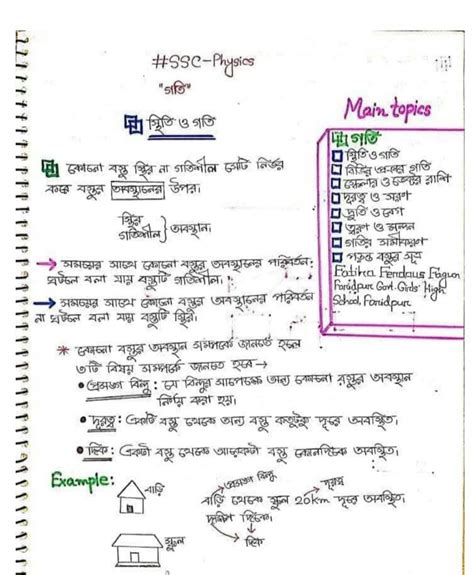 #SSC-Physics
"গতি"
স্থিতি ও গতি
কোনো বস্তু স্থির না গতিশীল সেটি নির্ভর
করে বস্তুর অবস্থানের উপর।
স্থির
গতিশীল } অবস্থান।
→ সময়ের সাথে কোনো বস্তুর অবস্থানের পরিবর্তন
ঘটলে বলা যায় বস্তুটি গতিশীল।
→ সময়ের সাথে কোনো বস্তুর অবস্থানের পরিবর্তন
না ঘটলে বলা যায় বস্তুটি স্থির।
* কোনো বস্তুর অবস্থান সম্পর্কে জানতে হলে
৩টি বিষয় সম্পর্কে জানতে হবে →
• প্রসঙ্গ বিন্দু: যে বিন্দুর সাপেক্ষে অন্য কোনো বস্তুর অবস্থান
নির্ণয় করা হয়।
• দূরত্ব: একটি বস্তু থেকে অন্য বস্তু কতটুকু দূরে অবস্থিত।
• দিক: একটা বস্তু থেকে আরেকটা বস্তু কোনদিকে অবস্থিত।
Example:
বাড়ি
স্কুল
প্রসঙ্গ বিন্দু
দূরত্ব
বাড়ি থেকে স্কুল 20km দূরে অবস্থিত,
দক্ষিণ দিকে।
দিক
Main topics
গতি
স্থিতি ও গতি
বিভিন্ন প্রকার গতি
স্কেলার ও ভেক্টর রাশি
দূরত্ব ও সরণ
দ্রুতি ও বেগ
ত্বরণ ও মন্দন
গতির সমীকরণ
পড়ন্ত বস্তুর সূত্র
Fatiha Ferdaus Fagun
Faridpur Govt. Girls' High
School, Faridpur